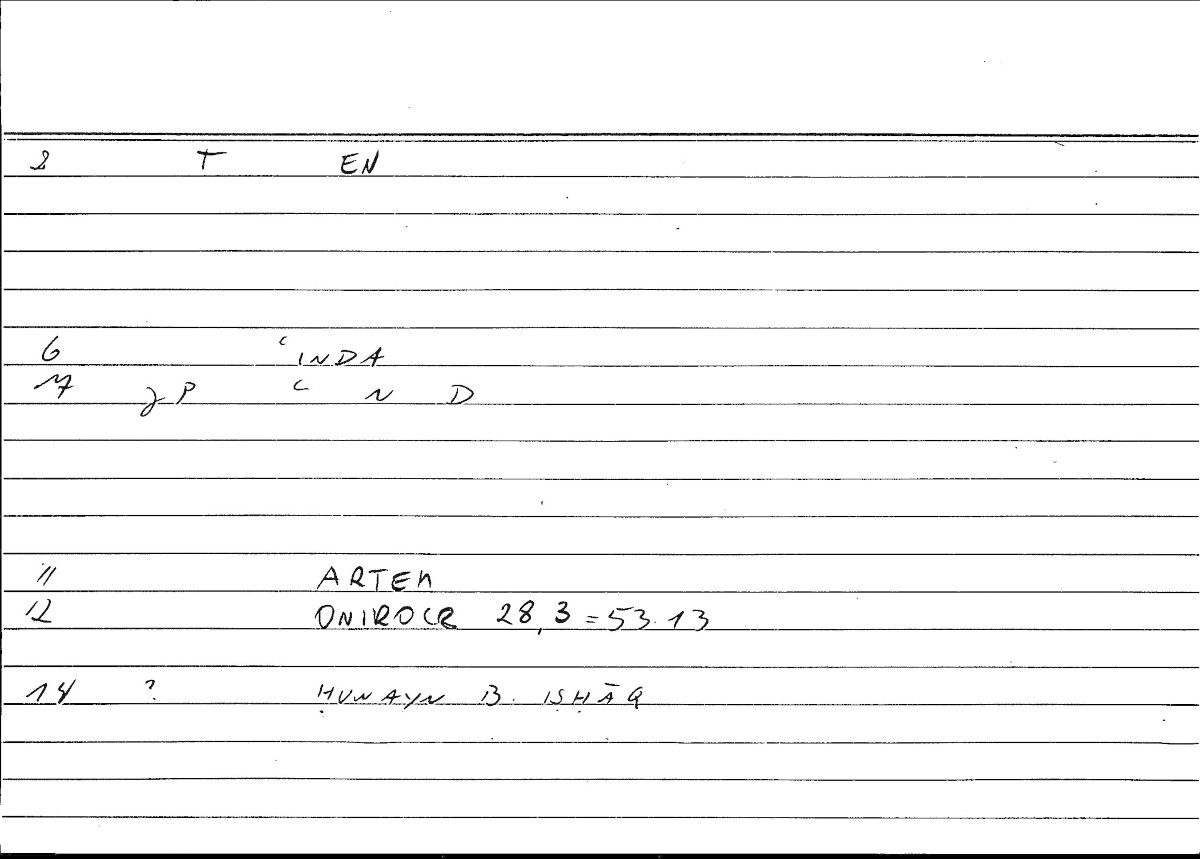 2 T EN
6 ʿINDA
7 JP ʿ N D
11 ARTEM
12 ONIROCR 28,3=53.13
14 ? ḤUNAYN B. ISḤĀQ